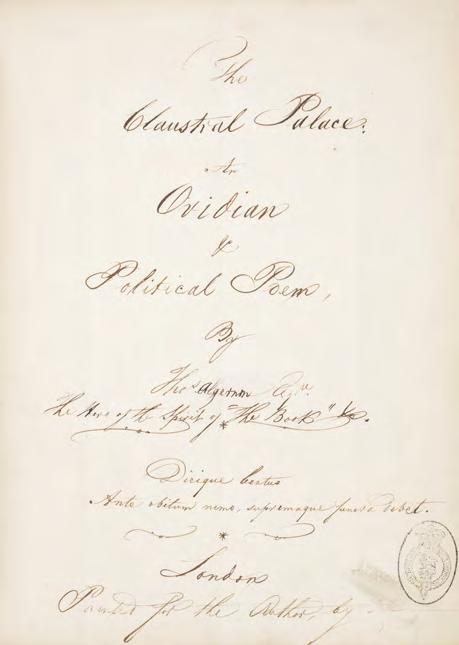 The
Claustral Palace.
An
Ovidian
&
Political Poem,
By
Thos Algernon Esqr.
The Hero of the Spirit of "The Book" &c.
Dicique beatus
Ante obitum nemo, supremaque funera debet.
London
Printed for the Author, by